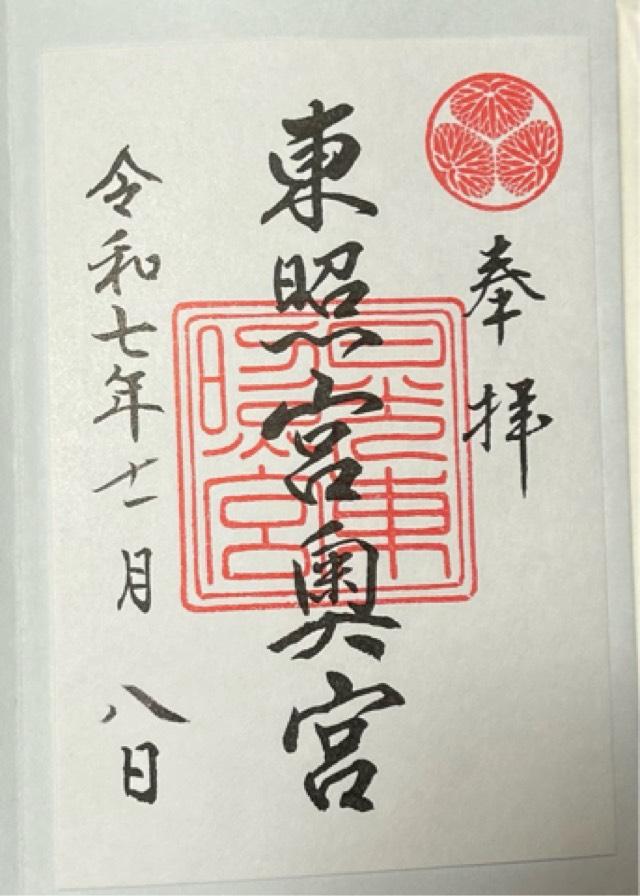 奉拝
東照宮奥宮
日光東照宮
令和七年十一月八日